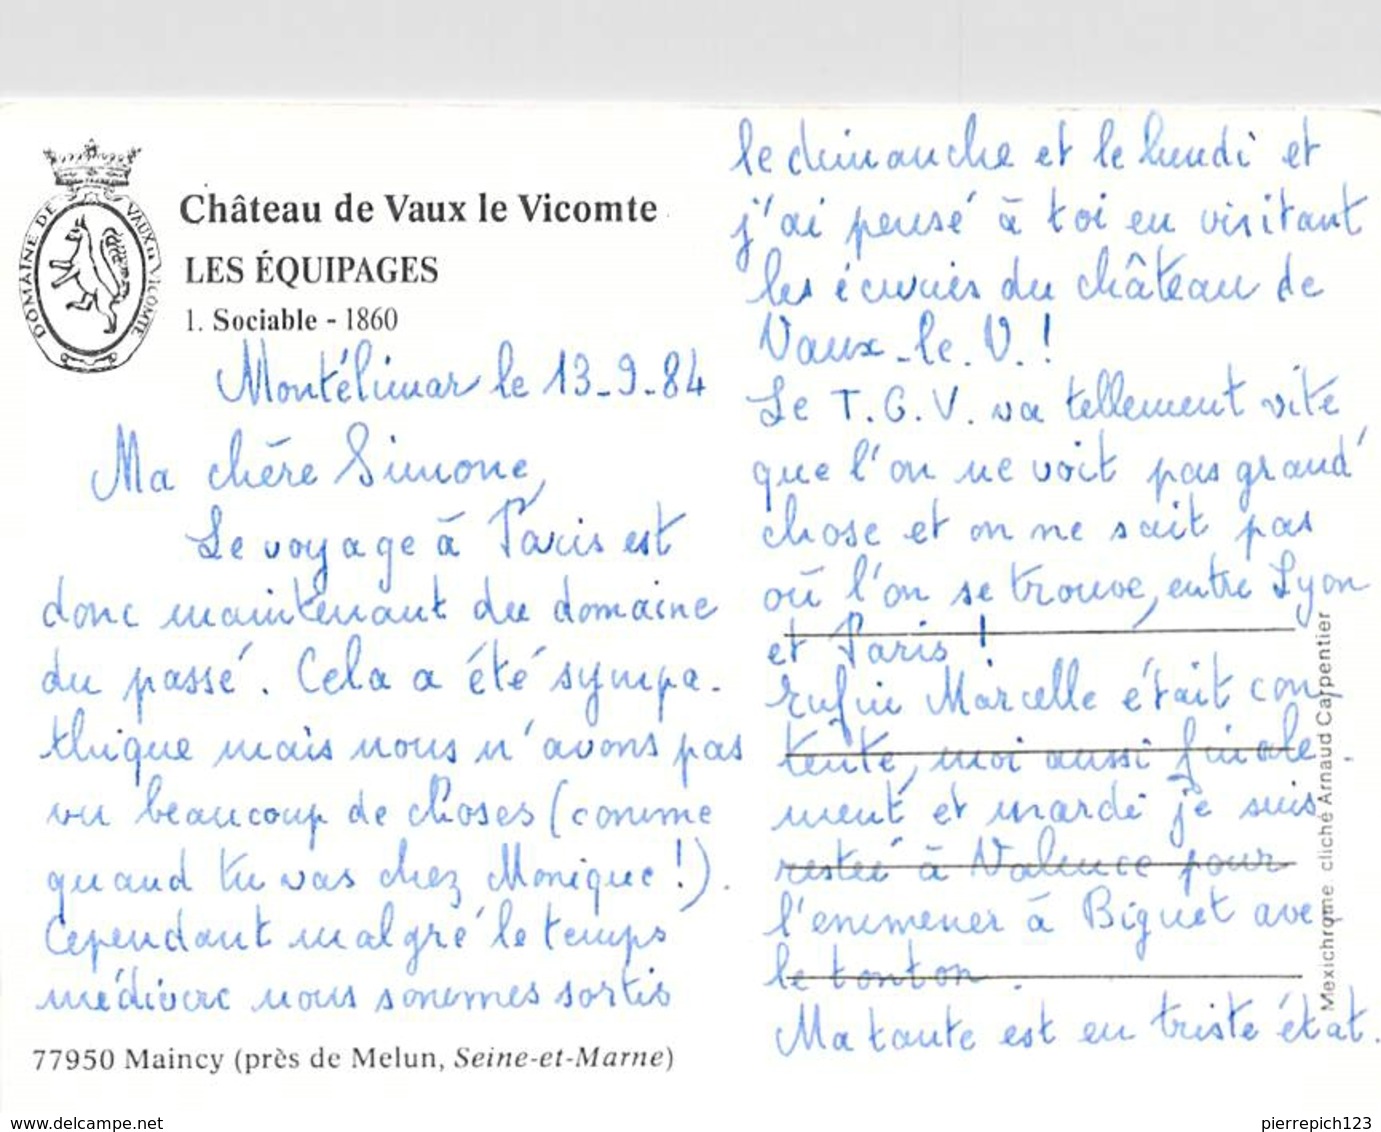 DOMAINE DE VAUX LE VICOMTE
Château de Vaux le Vicomte
LES ÉQUIPAGES
1. Sociable - 1860
Montélimar le 13-9-84
Ma chère Simone,
Le voyage à Paris est
donc maintenant du domaine
du passé. Cela a été sympa-
thique mais nous n'avons pas
vu beaucoup de choses (comme
quand tu vas chez Monique !).
Cependant malgré le temps
médiocre nous sommes sortis
77950 Maincy (près de Melun, Seine-et-Marne)
le dimanche et le lundi et
j'ai pensé à toi en visitant
les écuries du château de
Vaux-le.V.!
Le T.G.V. va tellement vite
que l'on ne voit pas grand'
chose et on ne sait pas
où l'on se trouve, entre Lyon
et Paris !
Enfin Marcelle était con-
tente, moi aussi finale-
ment et mardi je suis
restée à Valence pour
l'emmener à Biguet avec
le tonton.
Ma tante est en triste état.
Mexichrome. cliché Arnaud Carpentier
www.delcampe.net
pierrepich123